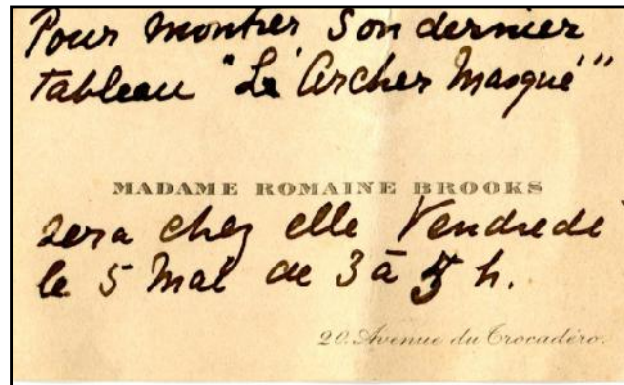 Pour montrer son dernier
tableau "Le Archer Masqué"
MADAME ROMAINE BROOKS
sera chez elle Vendredi
le 5 Mai de 3 à 5 h.
20. Avenue du Trocadéro.